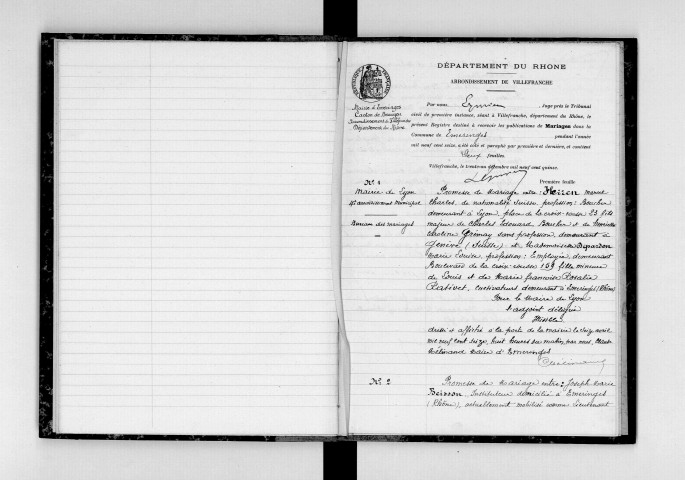 DÉPARTEMENT DU RHONE
ARRONDISSEMENT DE VILLEFRANCHE
RÉPUBLIQUE FRANÇAISE
Mairie d'Emeringes
Canton de Beaujeu
Arrondissement de Villefranche
Département du Rhône
Par nous, Juge près le Tribunal
civil de première instance, séant à Villefranche, département du Rhône, le
présent Registre destiné à recevoir les publications de Mariages dans la
Commune de Emeringes pendant l'année
mil neuf cent seize, a été coté et paraphé par première et dernière, et contient
Deux feuilles.
Villefranche, le trente-un décembre mil neuf cent quinze.
Première feuille
N° 1
Mairie de Lyon
4e arrondissement municipal
Bureau des mariages
Promesse de Mariage entre : Marcel
Charles de nationalité Suisse profession :
demeurant à Lyon, place de la croix-rousse 23 fils
majeur de Charles Edouard, et de
Caroline sans profession, demeurant à
Genève (Suisse) et Mademoiselle Depardon
Marie Louise, profession : Employée demeurant
Boulevard de la croix-rousse 159 fille mineure
de Louis et de Marie françoise Rosalie
cultivateurs demeurant à Emeringes (Rhône)
Pour le Maire de Lyon
L'adjoint délégué
dressé et affiché à la porte de la mairie le
mil neuf cent seize, huit heures du matin, par nous,
Maire d'Emeringes
N° 2
Promesse de Mariage entre : Joseph Marie
Instituteur domicilié à Emeringes
(Rhône), actuellement mobilisé comme Lieutenant